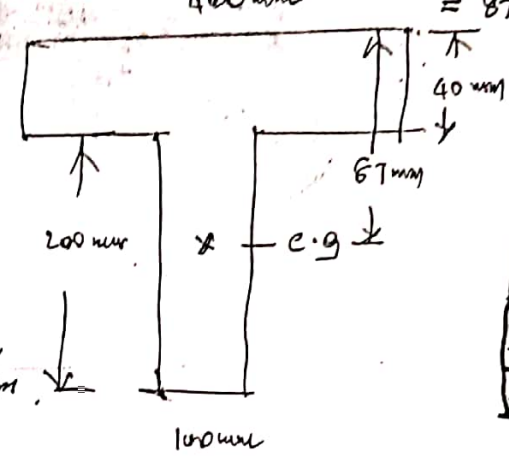 40 mm
87 mm
200 mm
x c.g
100 mm